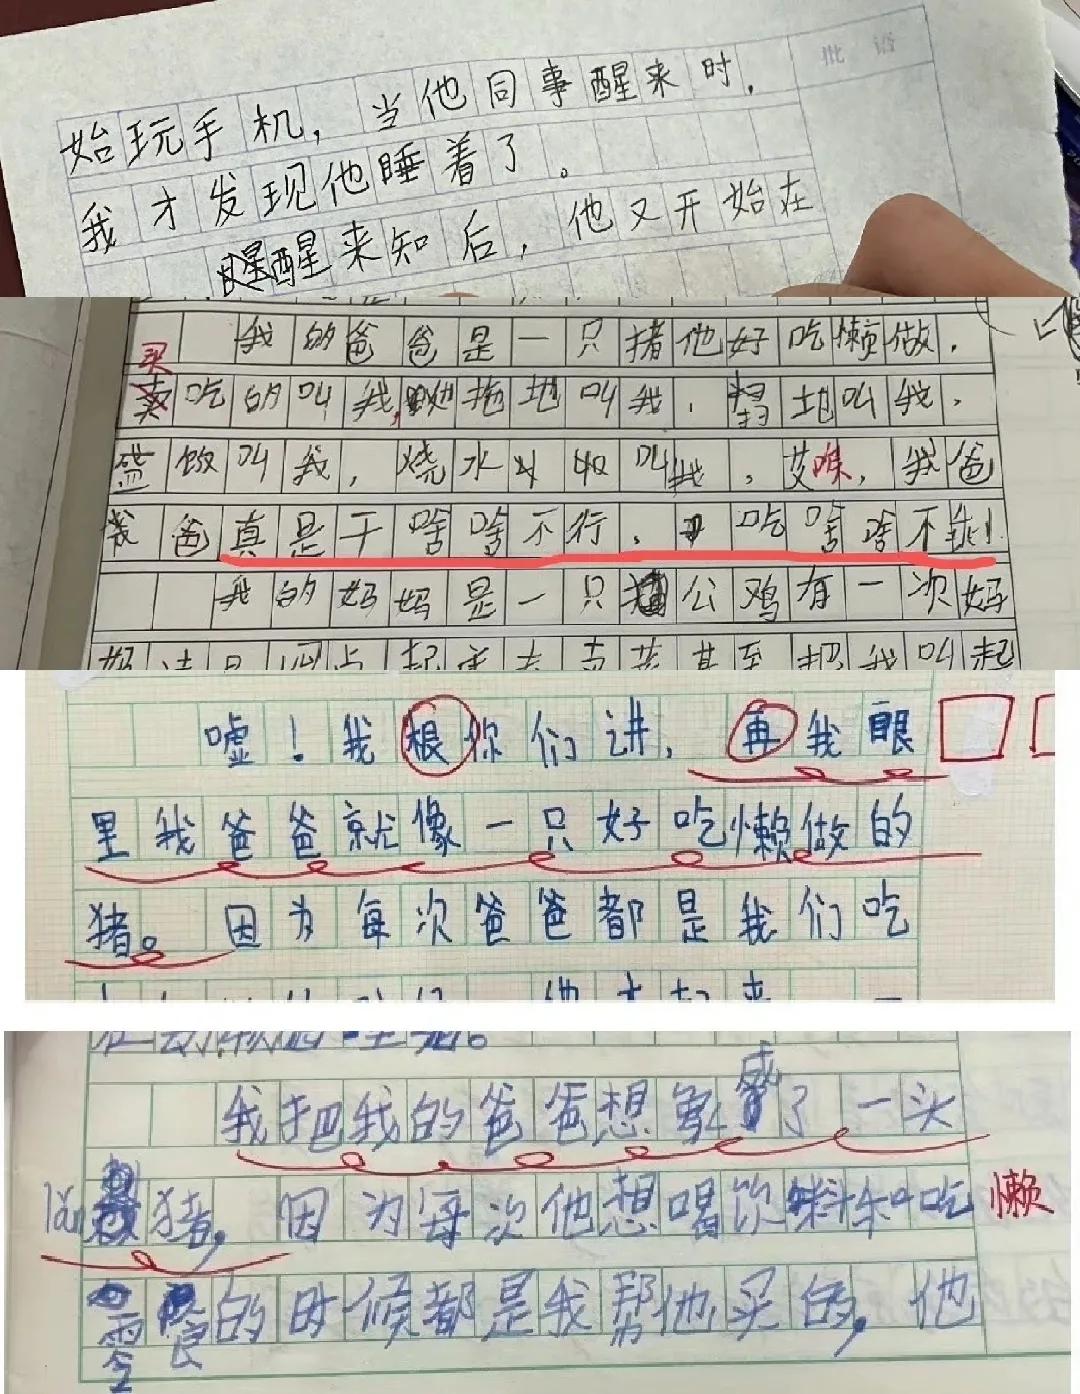 批语
始玩手机，当他同事醒来时，
我才发现他睡着了。
醒来知后，他又开始在
我的爸爸是一只猪他好吃懒做，
买
卖吃的叫我，拖地叫我，扫土地叫我，
盛饭叫我，烧水叫我，艾咪，我爸
我爸真是干啥啥不行，吃啥啥不剩！
我的妈妈是一只公鸡有一次好
嘘！我根你们讲，再我眼
里我爸爸就像一只好吃懒做的
猪。因为每次爸爸都是我们吃
我把我的爸爸想象成了一头
lǎn猪，因为每次他想喝饮料和吃 懒
零食的时候都是我帮他买的，他